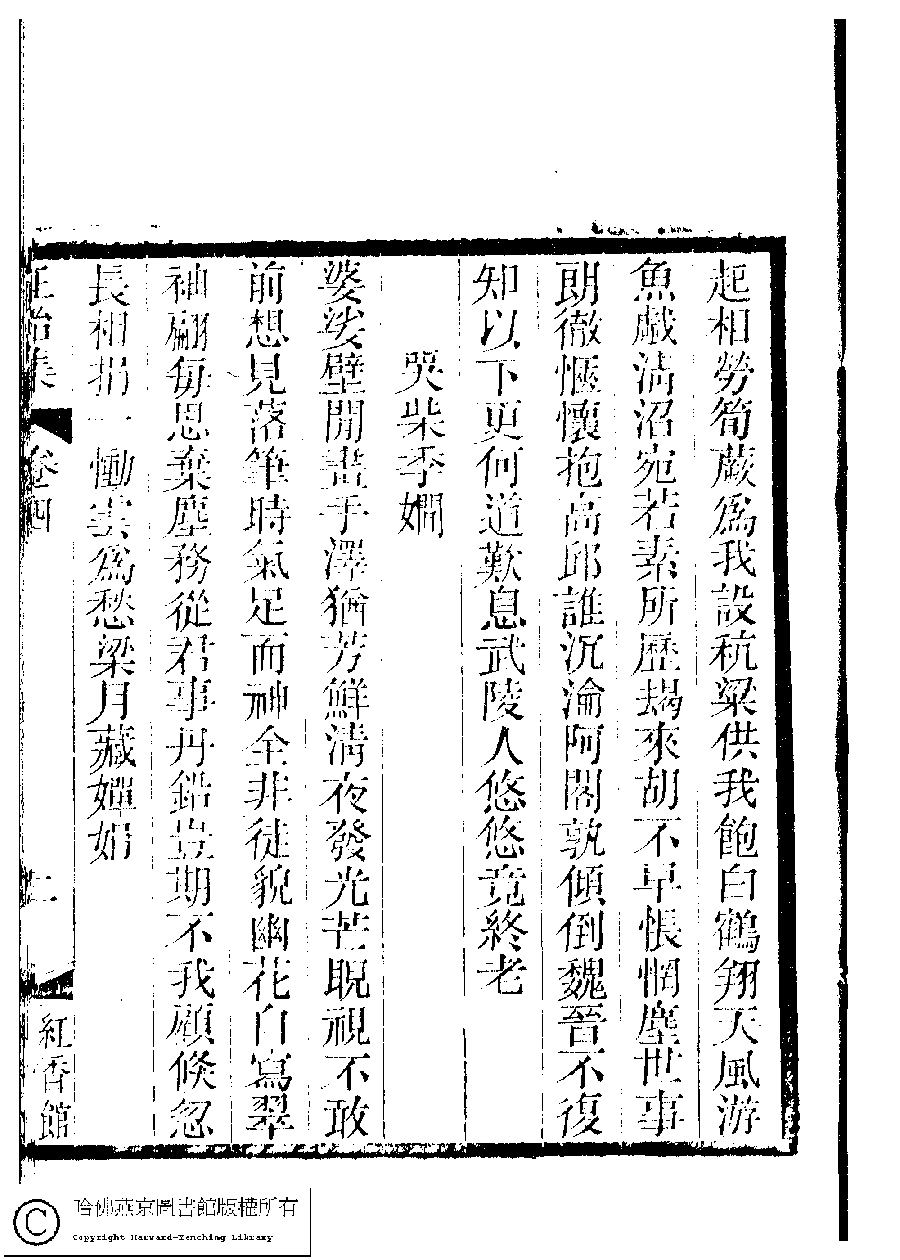 起相勞筍蕨爲我設秔粱供我飽白鶴翔天風游
魚戲清沼宛若素所歷朅來胡不早悵惘塵世事
朗徹愜懷抱高邱誰沉淪阿閣孰傾倒魏晉不復
知以下更何道歎息武陵人悠悠竟終老
哭柴季嫺
婆娑壁閒畫手澤猶芳鮮清夜發光芒睨視不敢
前想見落筆時氣足而神全非徒貌幽花自寫翠
袖翩每思棄塵務從君事丹鉛豈期不我顧倏忽
長相捐一慟雲爲愁梁月藏嬋娟
正始集 卷四
紅香館
哈佛燕京圖書館版權所有
Copyright Harvard-Yenching Library